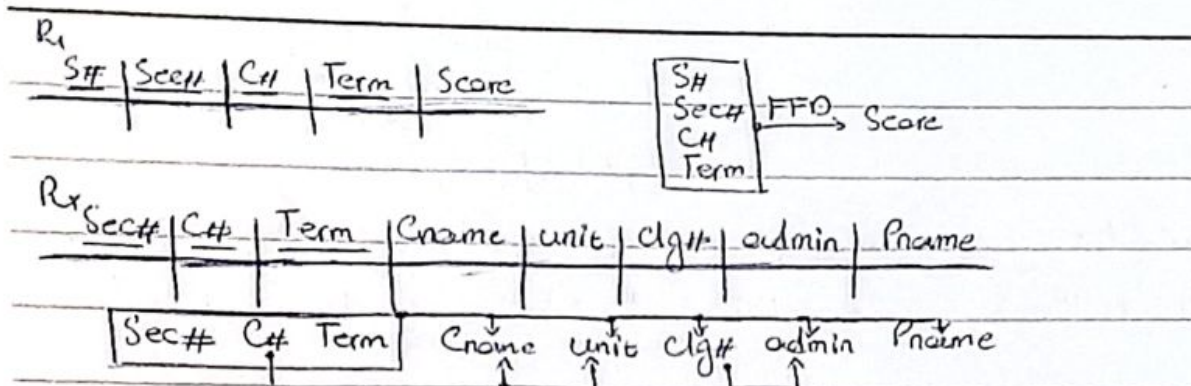 R1
S# Sec# C# Term Score
S#
Sec# FFD Score
C#
Term
Rx
Sec# C# Term Cname unit clg# admin Pname
Sec# C# Term Cname unit clg# admin Pname